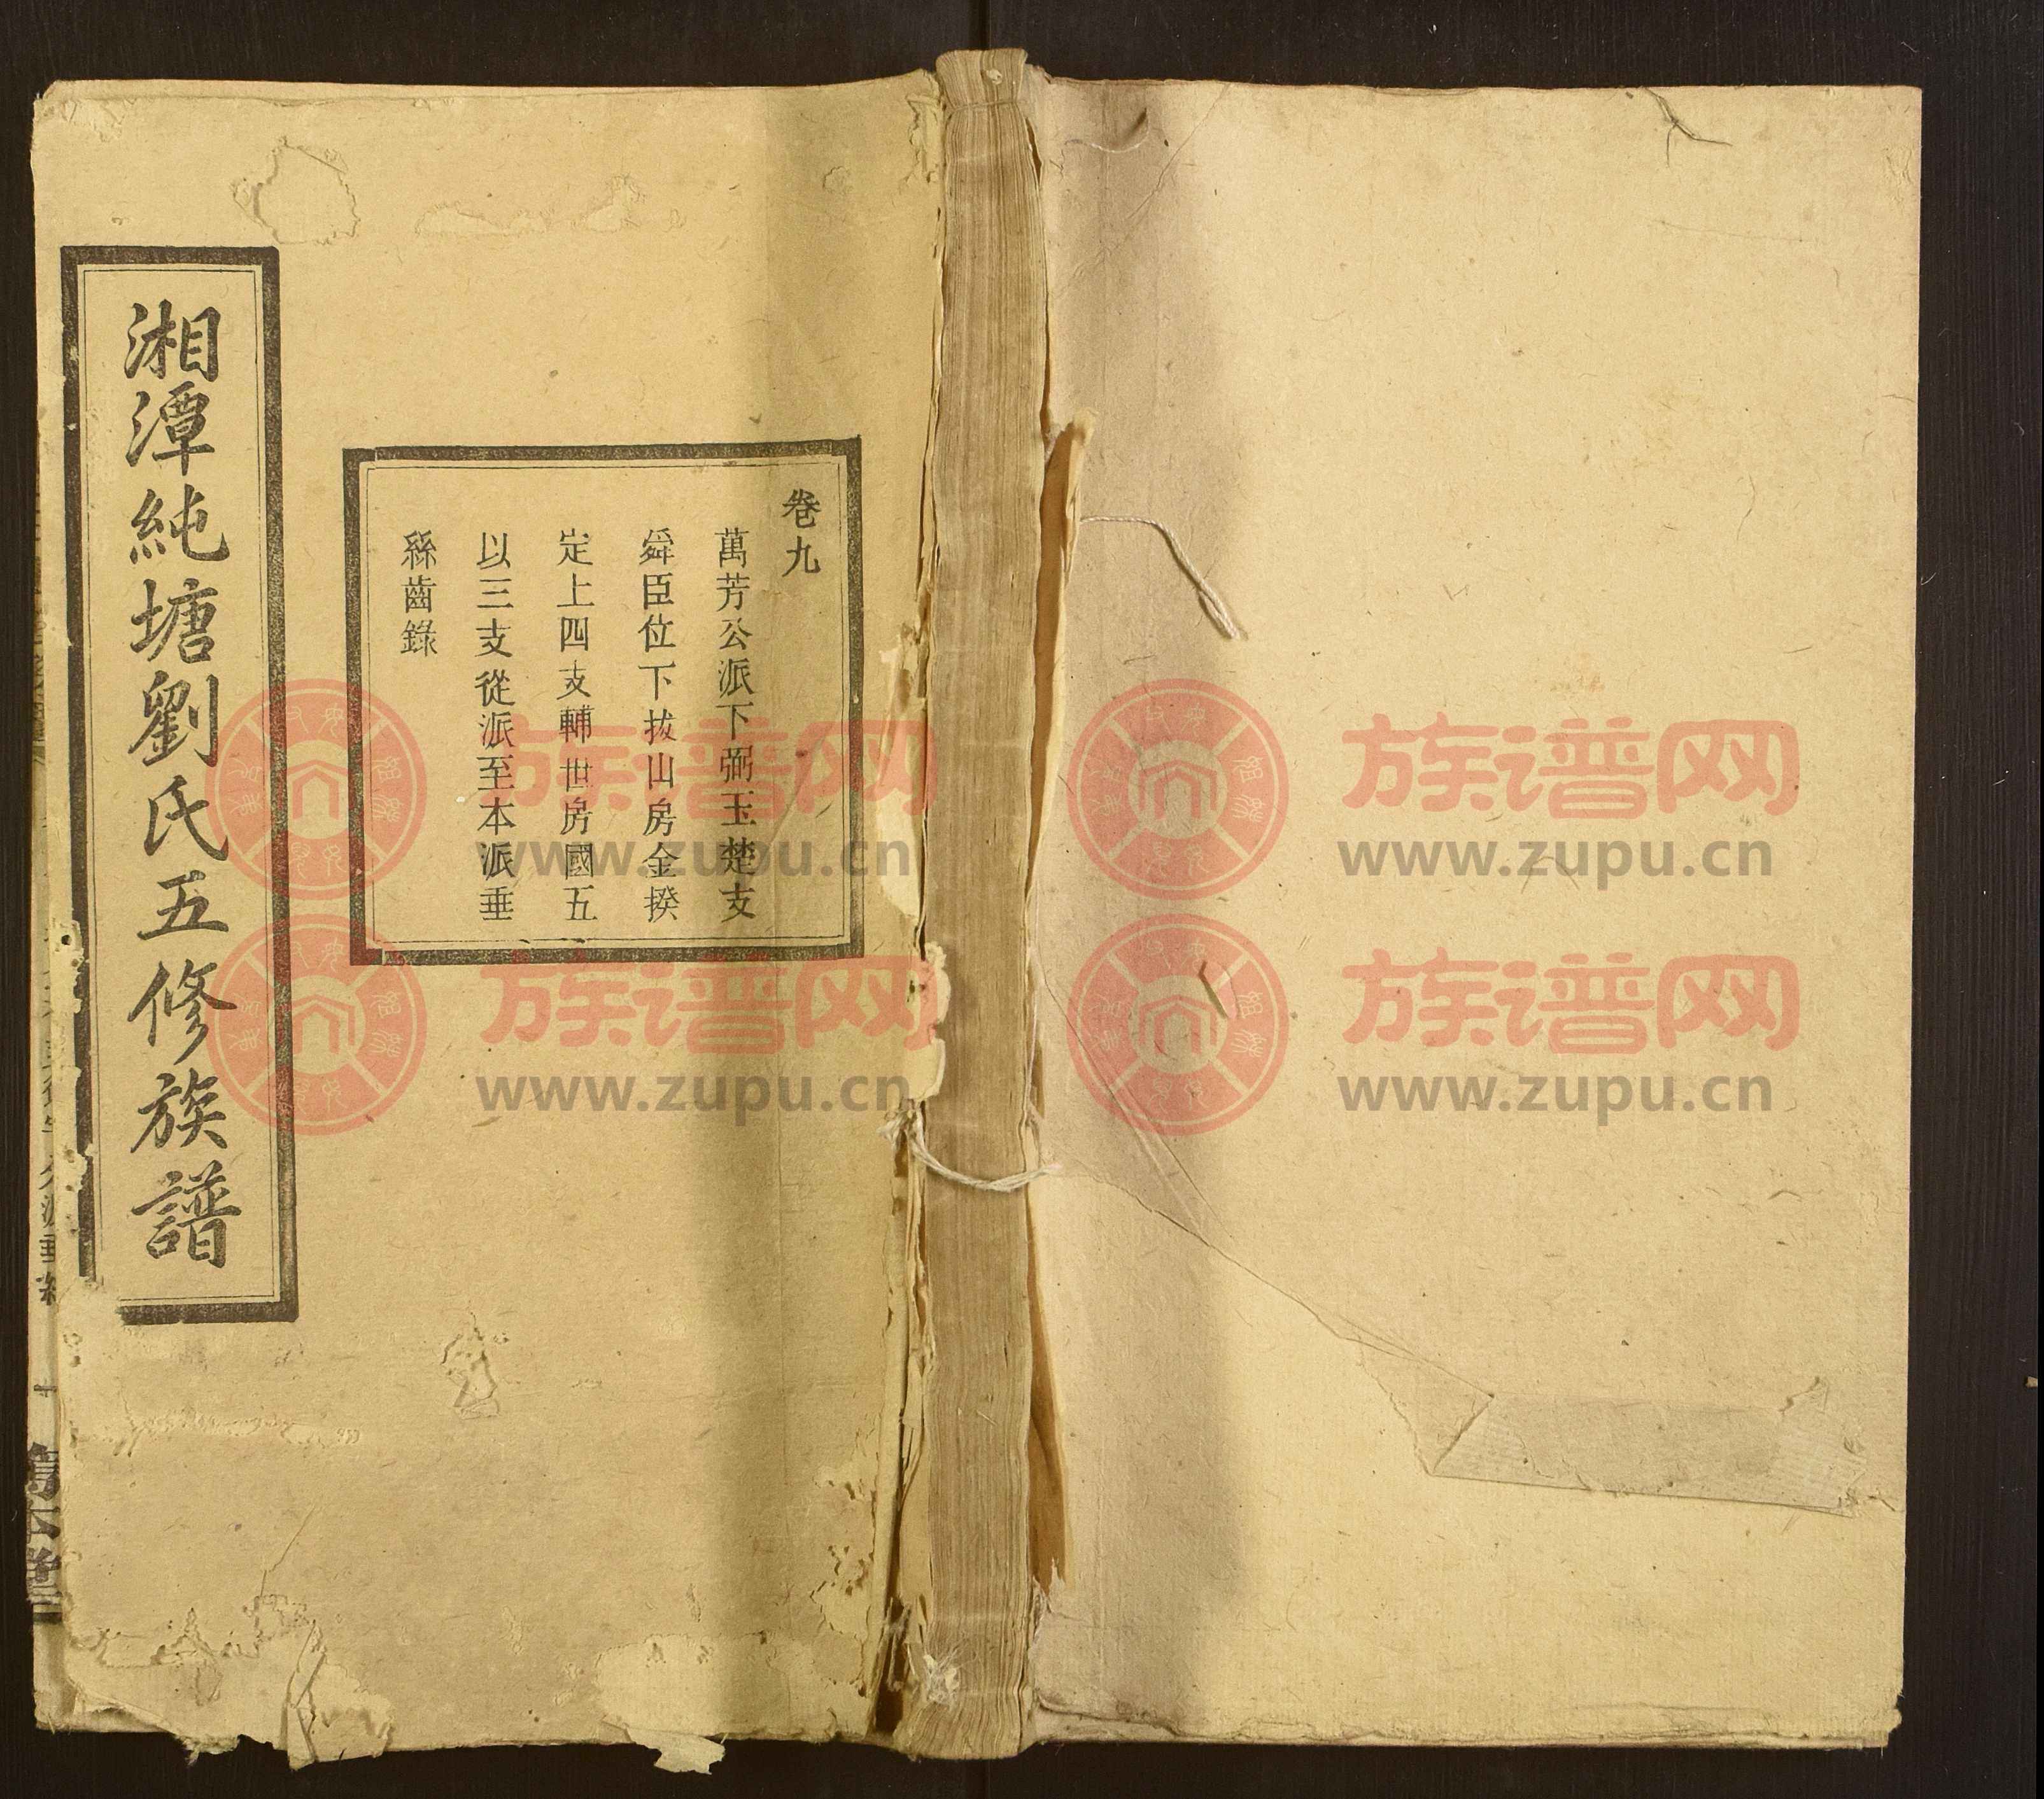 湘潭純塘劉氏五修族譜
卷九
萬芳公派下弼玉楚支
舜臣位下拔山房金揆
定上四支輔世房國五
以三支從派至本派垂
絲齒錄
族谱网
www.zupu.cn
族谱网
www.zupu.cn
族谱网
www.zupu.cn
族谱网
www.zupu.cn